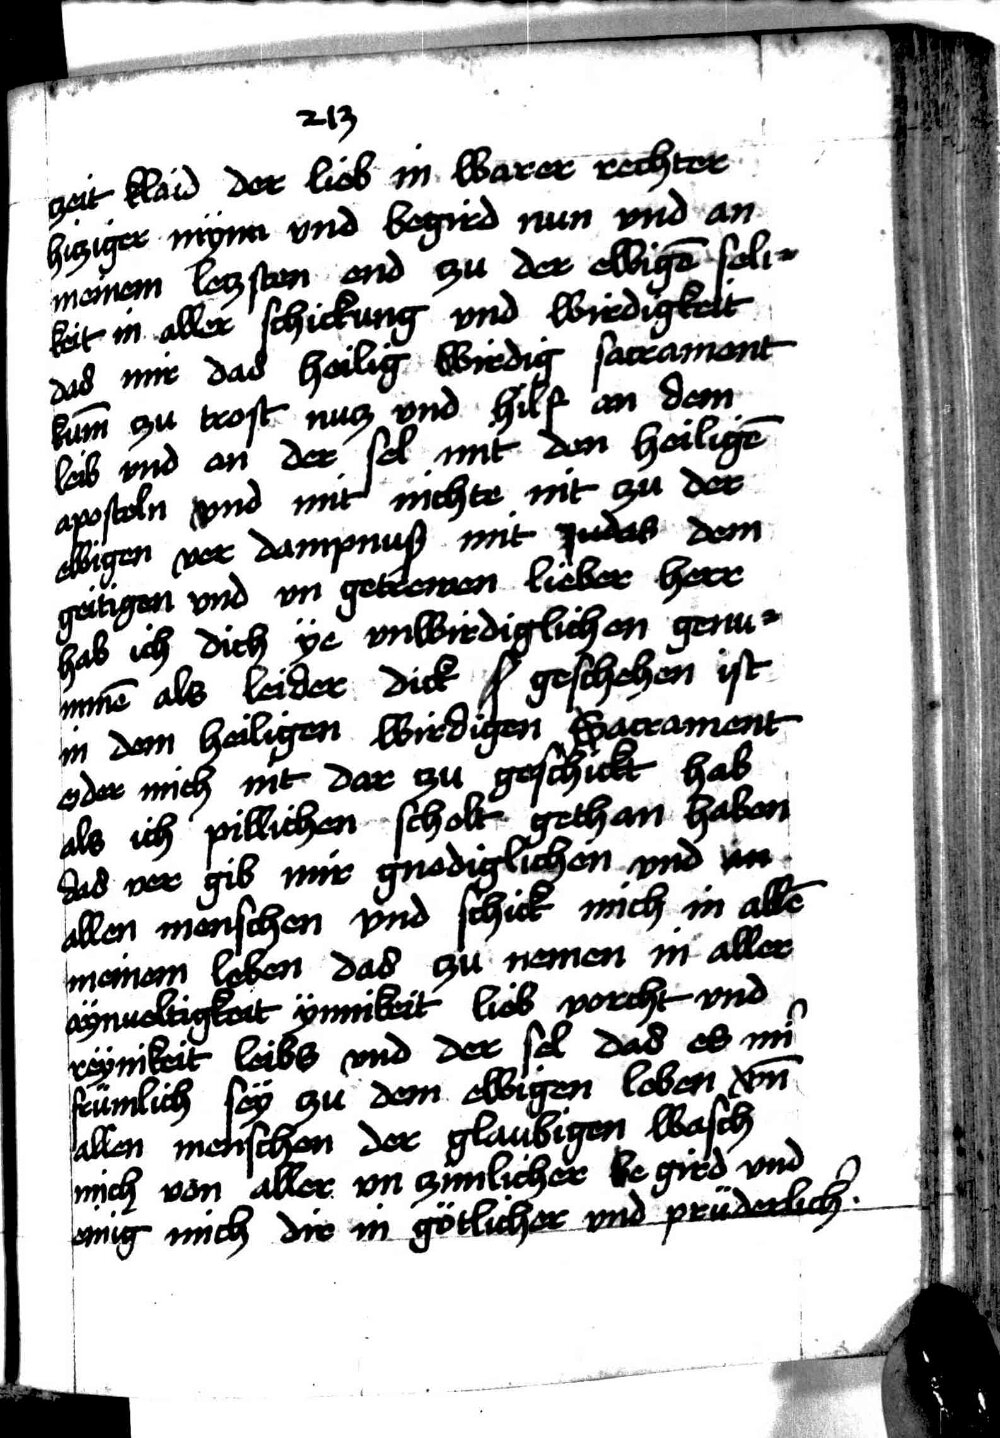 213
zeit klaid der lieb in warer rechter
hiziger mynn vnd begird nun vnd an
meinem letzsten end zu der ewigē seli=
keit in aller schickung vnd wirdigkeit
das mir das heilig wirdig sacrament
kum̄ zu trost nutz vnd hilf an dem
leib vnd an der sel mit den heiligē
aposteln vnd mit nichte nit zu der
ewigen ver dampnuß mit Judas dem
geitigen vnd vn getrewen lieber herr
hab ich dich ÿe vnwirdiglichen genu=
mmē als leider dick geschehen ist
in dem heiligen wirdigen Sacrament
oder mich nit dar zu geschickt hab
als ich pillichen scholt gethan haben
das ver gib mir gnediglichen vnd an
allen menschen vnd schick mich in allē
meinem leben das zu nemen in aller
aÿnueltigkeit ÿnnikeit lieb vorcht vnd
reÿnikeit leibs vnd der sel das es mir
frümlich seÿ zu dem ewigen leben vn̄
allen menschen der glaubigen wasch
mich von aller vn zimlicher be gird vnd
einig mich dir in götlicher vnd prüderlicher